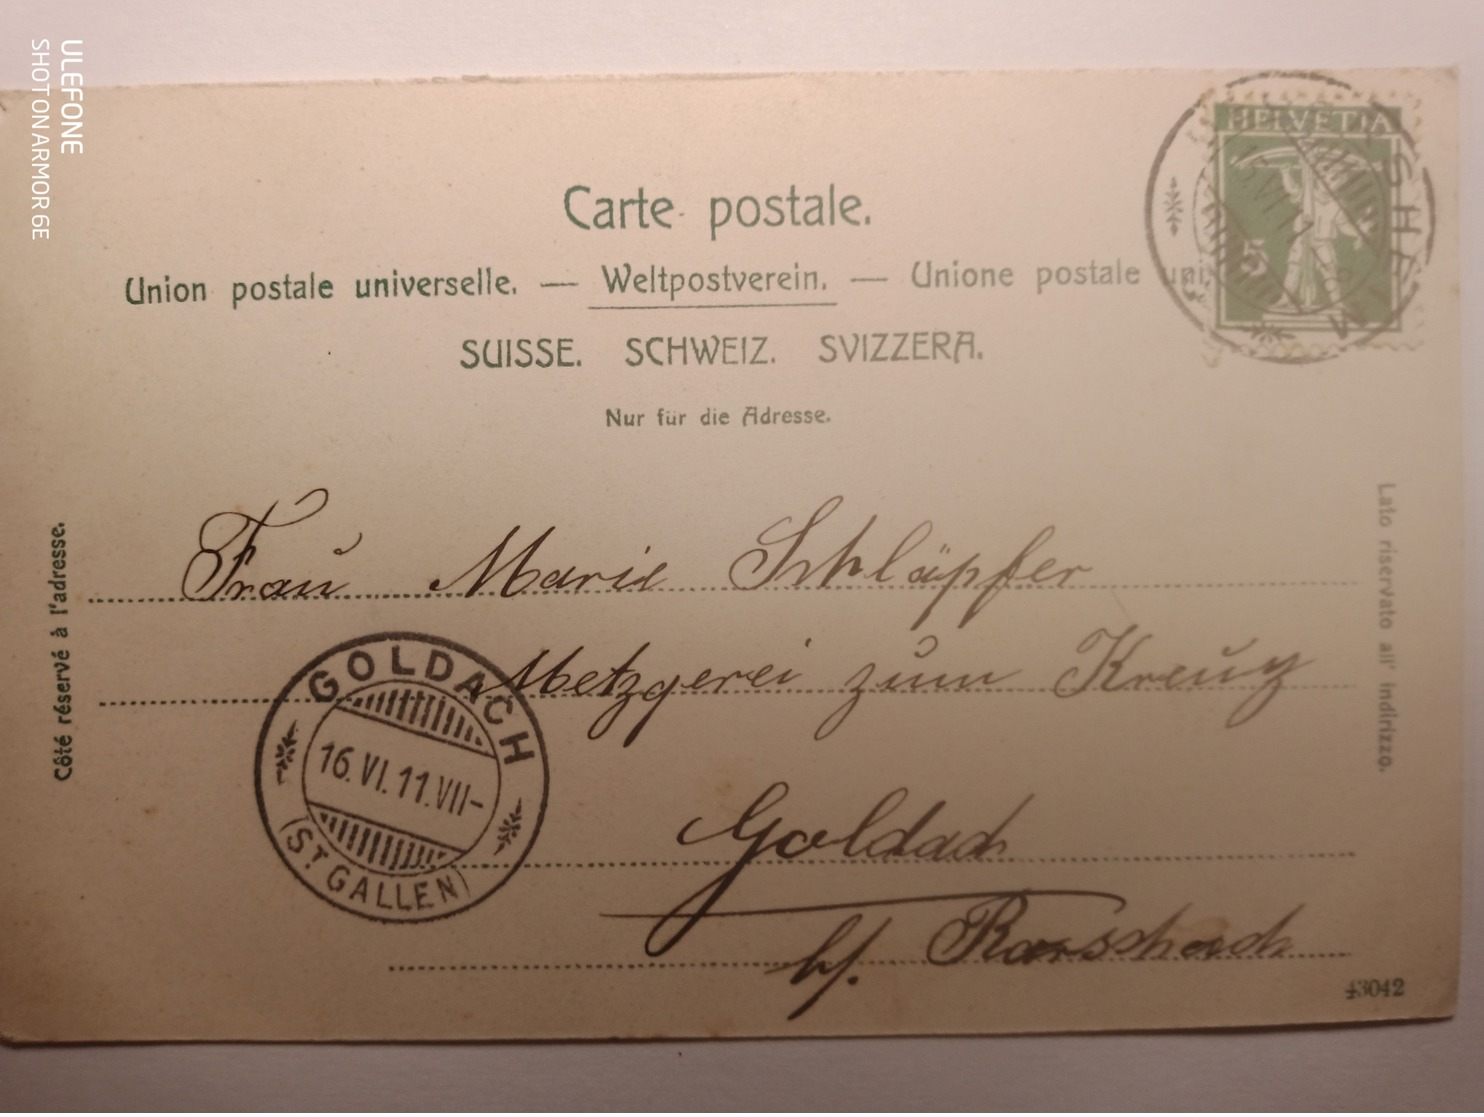 ULEFONE
SHOT ON ARMOR 6E
HELVETIA
5
Carte postale.
Union postale universelle. — Weltpostverein. — Unione postale uni
SUISSE. SCHWEIZ. SVIZZERA.
Nur für die Adresse.
Côté réservé à l'adresse.
Lato riservato all' indirizzo.
Frau Marie Schläpfer
Metzgerei zum Kreuz
Goldach
b/. Rorschach
GOLDACH
16.VI.11.VII-
(ST GALLEN)
43042